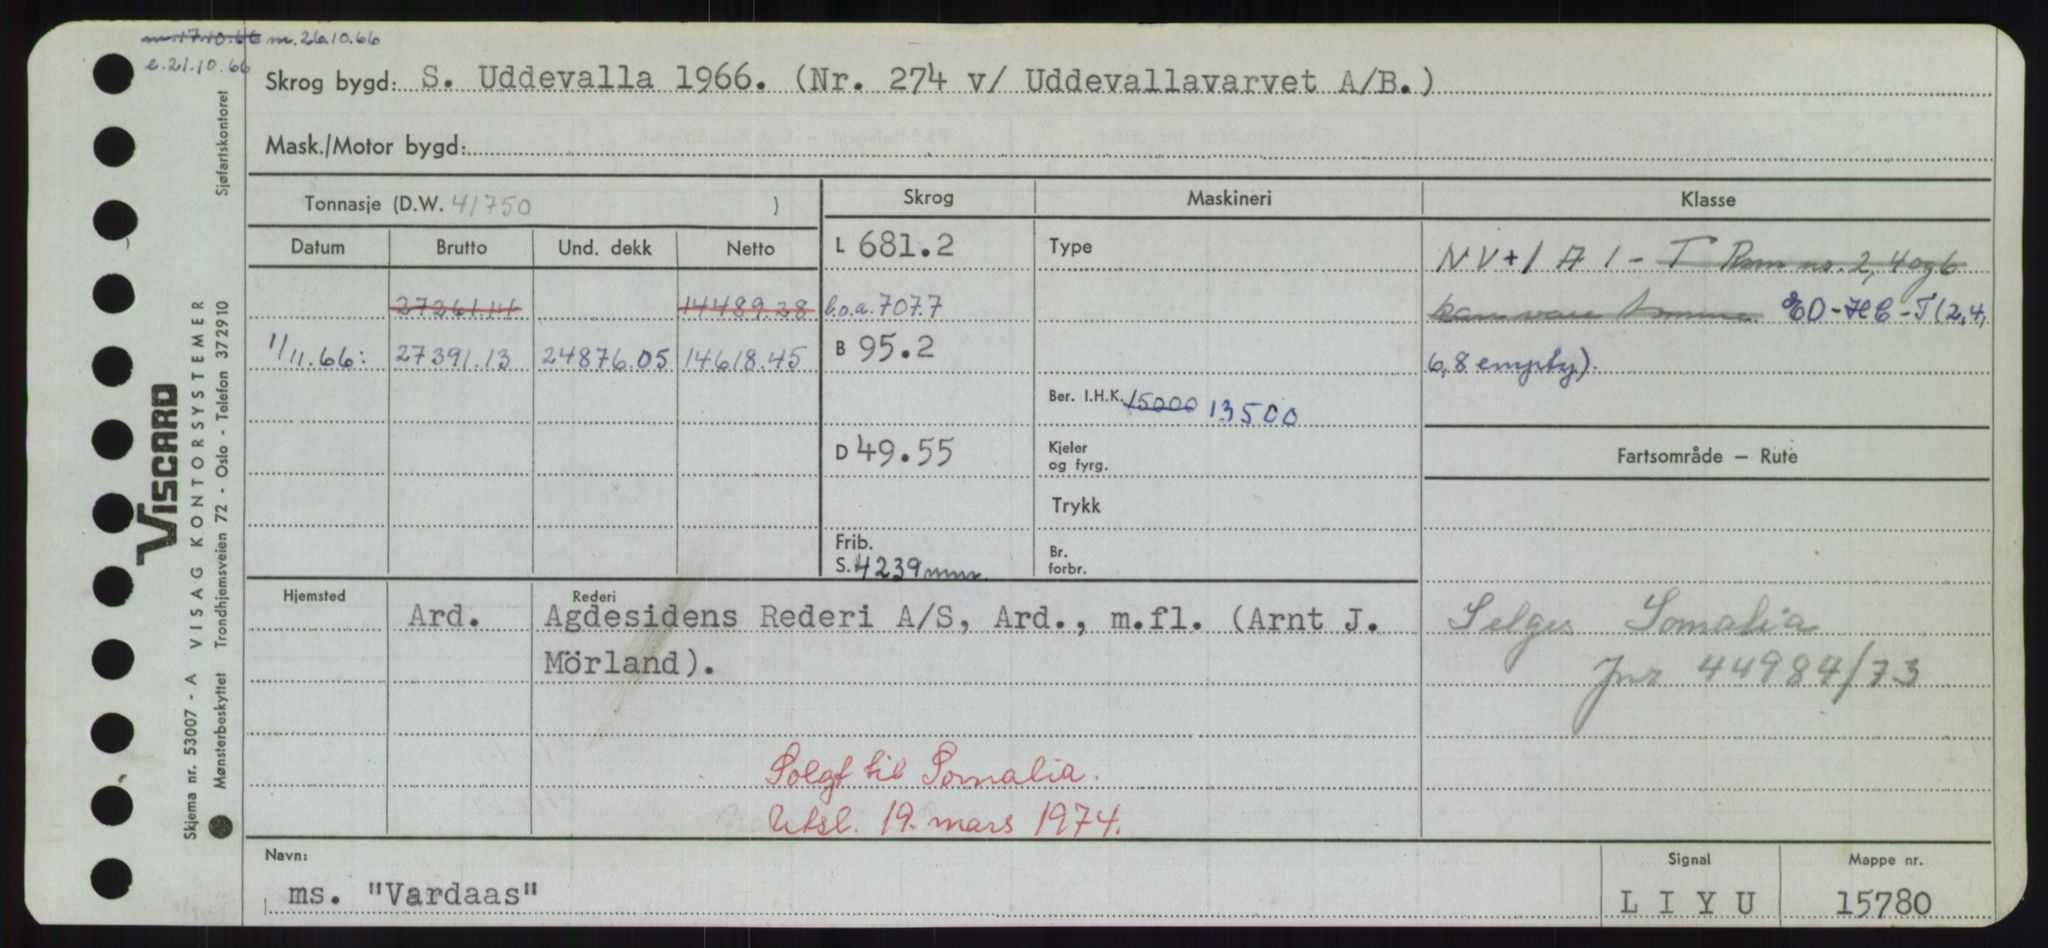 m. 17.10.66 m. 26.10.66
e. 21.10.66
Skrog bygd: S. Uddevalla 1966. (Nr. 274 v/ Uddevallavarvet A/B.)
Mask./Motor bygd:
Tonnasje (D.W. 41750 )
Skrog Maskineri Klasse
Datum Brutto Und. dekk Netto
L 681.2 Type NV+1A1-T Rom nr. 2, 4 og 6
27261.14 14489.28 l.o.a. 707.7 kan være tomme. EO-HC-T(2,4,
1/11.66: 27391.13 24876.05 14618.45 B 95.2 6,8 empty).
Ber. I.H.K. 15000 13500
D 49.55 Kjeler og fyrg.
Fartsområde — Rute
Trykk
Frib. S. 4239 mm. Br. forbr.
Hjemsted Rederi
Ard. Agdesidens Rederi A/S, Ard., m.fl. (Arnt J. Selges Somalia
Mörland). Jnr 44984/73
Solgt til Somalia.
Utsl. 19. mars 1974.
Navn: Signal Mappe nr.
ms. "Vardaas" L I Y U 15780
Viscard
VISAG KONTORSYSTEMER
Skjema nr. 53007 - A
Mønsterbeskyttet Trondhjemsveien 72 - Oslo - Telefon 372910 Sjøfartskontoret